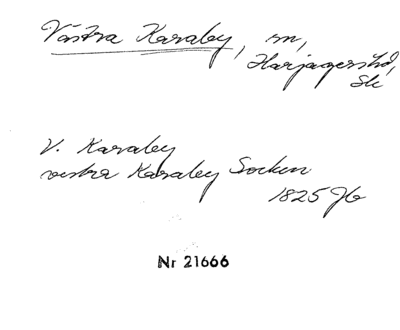 Västra Karaby, sn,
Harjagershd,
Sk
V. Karaby
vestra Karaby Socken
1825 Jb
Nr 21666